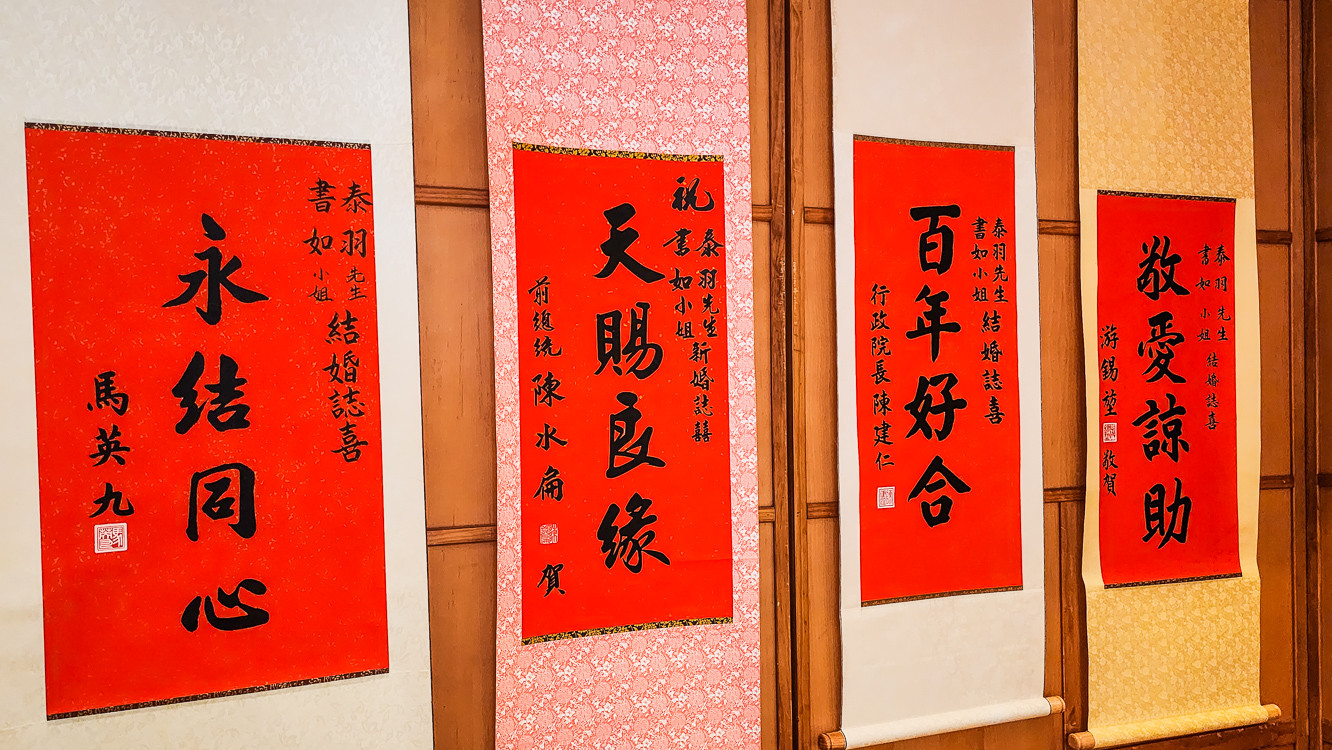 泰羽先生
書如小姐
結婚誌喜
永結同心
馬英九
祝
泰羽先生
書如小姐
新婚誌囍
天賜良緣
前總統陳水扁 賀
泰羽先生
書如小姐
結婚誌喜
百年好合
行政院長陳建仁
泰羽先生
書如小姐
結婚誌喜
敬愛諒助
游錫堃 敬賀